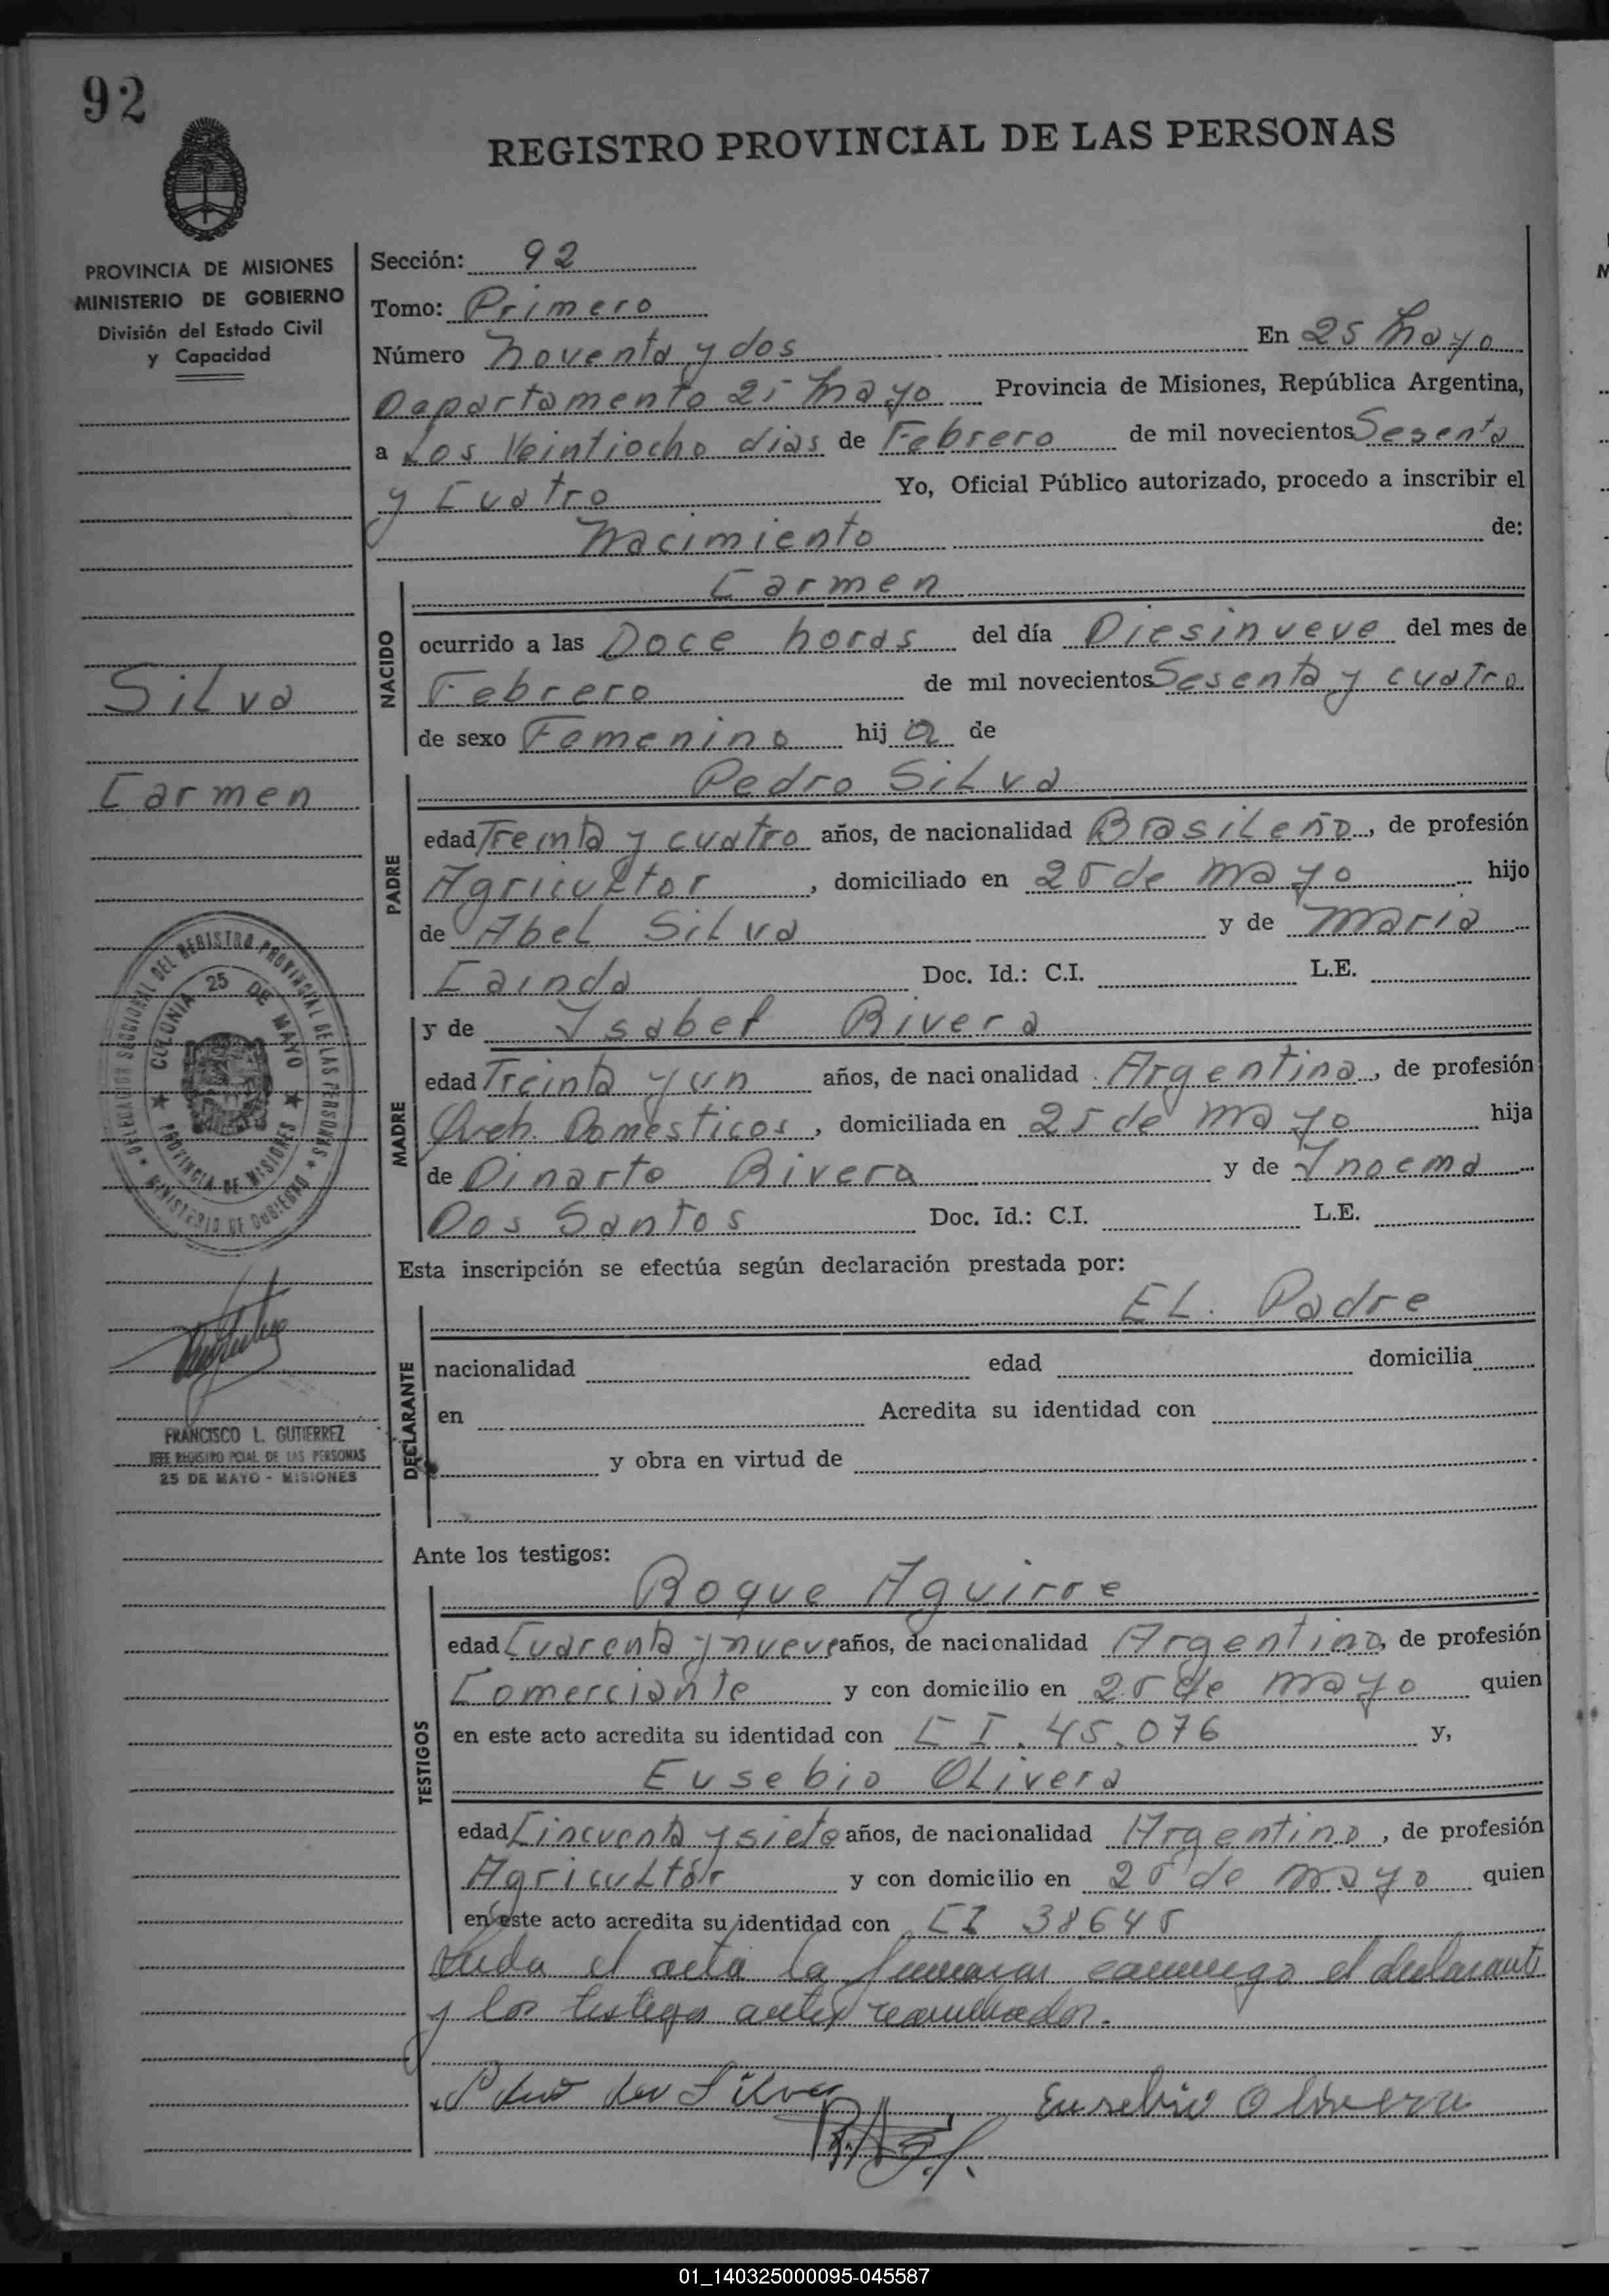 92
REGISTRO PROVINCIAL DE LAS PERSONAS
PROVINCIA DE MISIONES
MINISTERIO DE GOBIERNO
División del Estado Civil
y Capacidad
Sección: 92
Tomo: Primero
Número Noventa y dos En 25 Mayo
Departamento 25 Mayo Provincia de Misiones, República Argentina,
a Los Veintiocho dias de Febrero de mil novecientos Sesenta
y Cuatro Yo, Oficial Público autorizado, procedo a inscribir el
Nacimiento de:
NACIDO
Carmen
ocurrido a las Doce horas del día Diesinueve del mes de
Febrero de mil novecientos Sesenta y cuatro
de sexo Femenino hija de
Silva
Carmen
PADRE
Pedro Silva
edad Treinta y cuatro años, de nacionalidad Brasileño, de profesión
Agricultor, domiciliado en 25 de Mayo hijo
de Abel Silva y de Maria
Cainda Doc. Id.: C.I. L.E.
MADRE
y de Ysabel Rivera
edad Treinta y un años, de nacionalidad Argentina, de profesión
Queh. Domesticos, domiciliada en 25 de Mayo hija
de Dinarte Rivera y de Ynoema
Dos Santos Doc. Id.: C.I. L.E.
DELEGACION SECCIONAL DEL REGISTRO PROVINCIAL DE LAS PERSONAS
MINISTERIO DE GOBIERNO
COLONIA 25 DE MAYO
PROVINCIA DE MISIONES
FRANCISCO L. GUTIERREZ
JEFE REGISTRO PCIAL DE LAS PERSONAS
25 DE MAYO - MISIONES
Esta inscripción se efectúa según declaración prestada por:
DECLARANTE
EL. Padre
nacionalidad edad domicilia
en Acredita su identidad con
y obra en virtud de
Ante los testigos:
TESTIGOS
Roque Aguirre
edad Cuarenta y nueve años, de nacionalidad Argentino, de profesión
Comerciante y con domicilio en 25 de Mayo quien
en este acto acredita su identidad con CI. 45.076 y,
Eusebio Olivera
edad Cincuenta y siete años, de nacionalidad Argentino, de profesión
Agricultór y con domicilio en 25 de Mayo quien
en este acto acredita su identidad con CI 38645
Leida el acta la firmaron conmigo el declarante
y los testigos antes nombrados.
Pedro da Silva
Eusebio Olivera
01_140325000095-045587